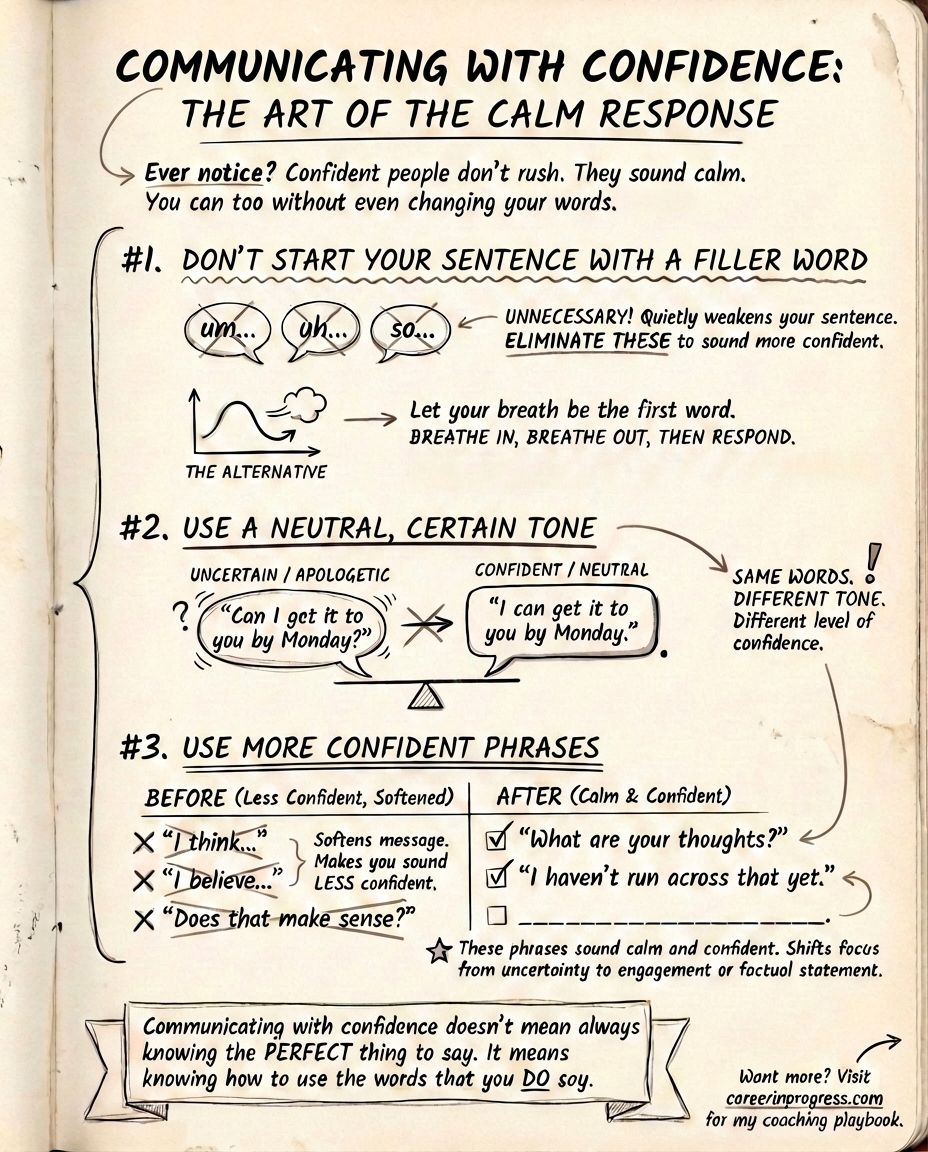 COMMUNICATING WITH CONFIDENCE:
THE ART OF THE CALM RESPONSE
Ever notice? Confident people don't rush. They sound calm.
You can too without even changing your words.
#1. DON'T START YOUR SENTENCE WITH A FILLER WORD
um... uh... so...
UNNECESSARY! Quietly weakens your sentence.
ELIMINATE THESE to sound more confident.
THE ALTERNATIVE
Let your breath be the first word.
BREATHE IN, BREATHE OUT, THEN RESPOND.
#2. USE A NEUTRAL, CERTAIN TONE
UNCERTAIN / APOLOGETIC
?
"Can I get it to
you by Monday?"
CONFIDENT / NEUTRAL
"I can get it to
you by Monday."
.
!
SAME WORDS.
DIFFERENT TONE.
Different level of
confidence.
#3. USE MORE CONFIDENT PHRASES
BEFORE (Less Confident, Softened)
"I think..."
"I believe..."
"Does that make sense?"
Softens message.
Makes you sound
LESS confident.
AFTER (Calm & Confident)
"What are your thoughts?"
"I haven't run across that yet."
____________________.
These phrases sound calm and confident. Shifts focus
from uncertointy to engagement or foctuol statement.
Communicating with confidence doesn't mean always
knowing the PERFECT thing to say. It means
knowing how to use the words that you DO soy.
Want more? Visit
coreerinprogress.com
for my coaching playbook.